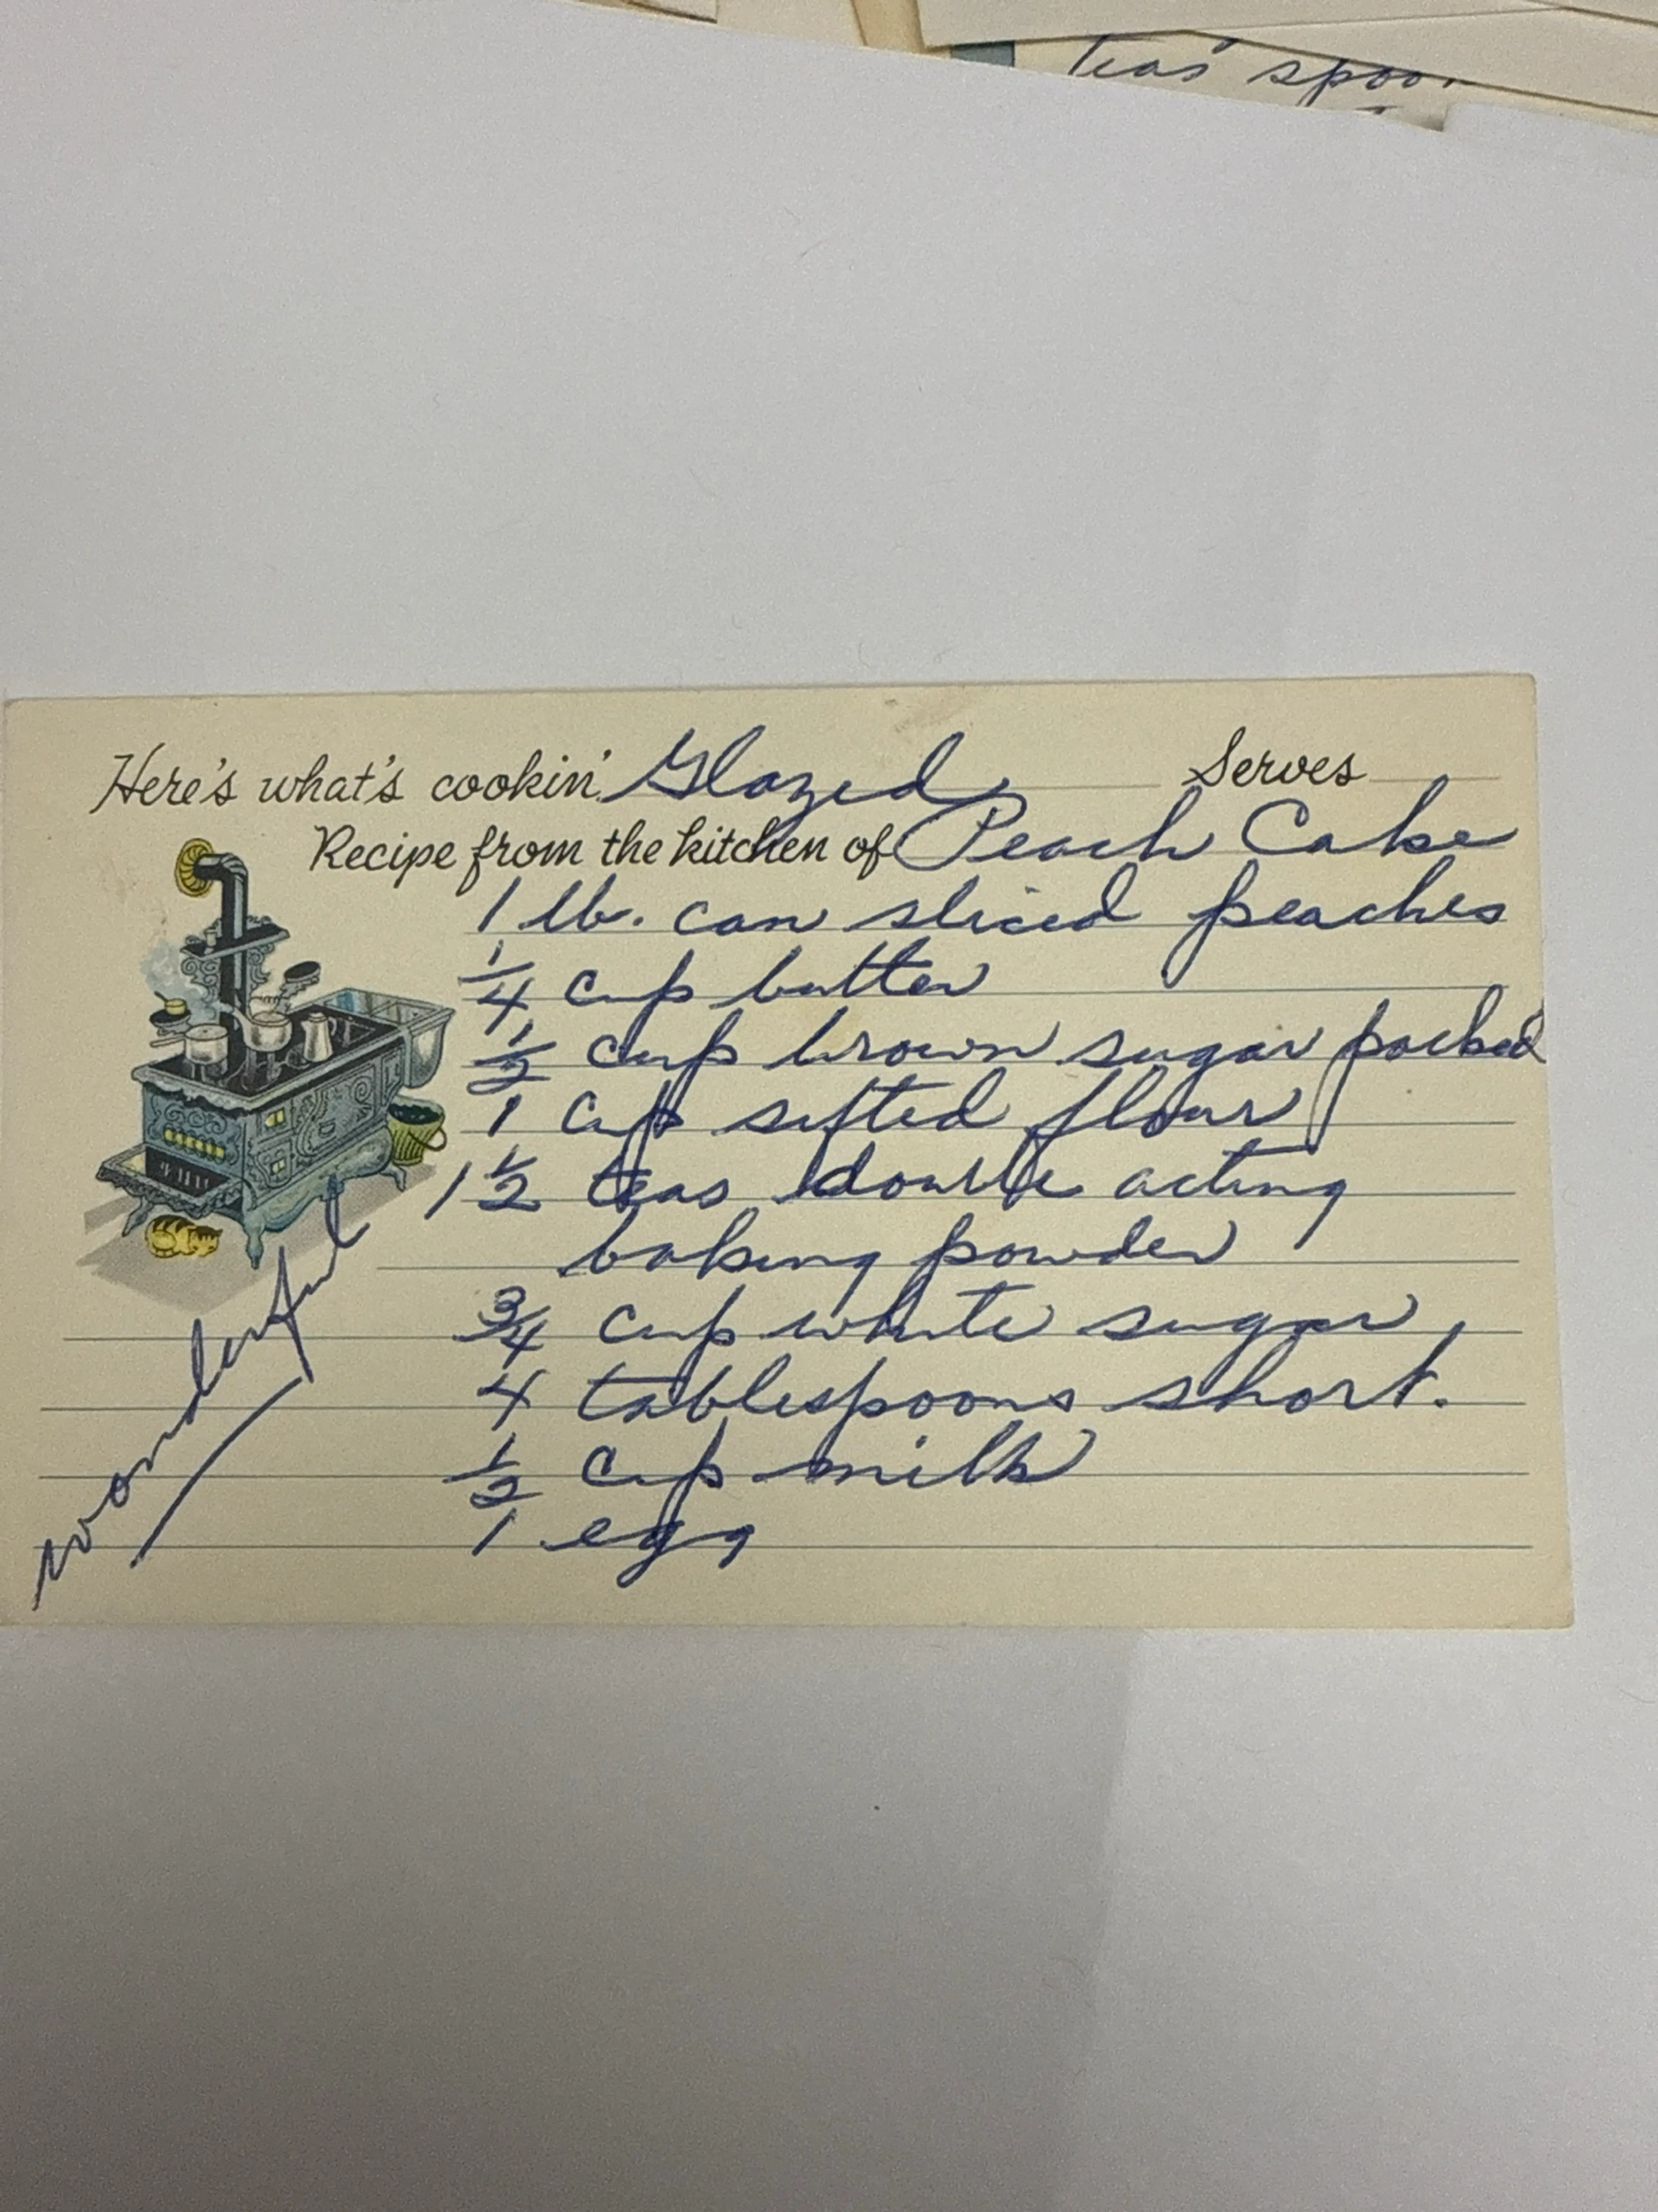 teas' spoo
Here's what's cookin' Glazed Serves
Recipe from the kitchen of Peach Cake
1 lb. can sliced peaches
1/4 cup butter
1/2 cup brown sugar packed
1 cup sifted flour
1 1/2 teas double acting
baking powder
3/4 cup white sugar
4 tablespoons short.
1/2 cup milk
1 egg
wonderful